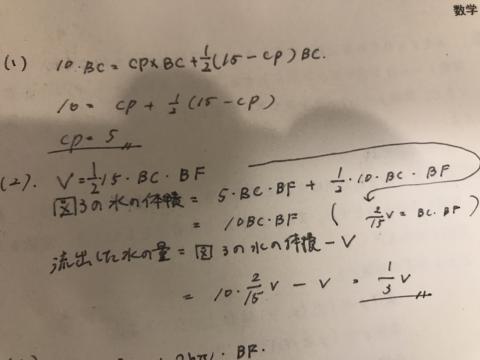 数学
(1) 10・BC = CP×BC + 1/2(15-CP)BC.
10 = CP + 1/2(15-CP)
CP = 5
(2). V = 1/2 15・BC・BF
図3の水の体積 = 5・BC・BF + 1/2・10・BC・BF
= 10BC・BF ( 2/15 V = BC・BF )
流出した水の量 = 図3の水の体積 - V
= 10・2/15 V - V = 1/3 V
BF.